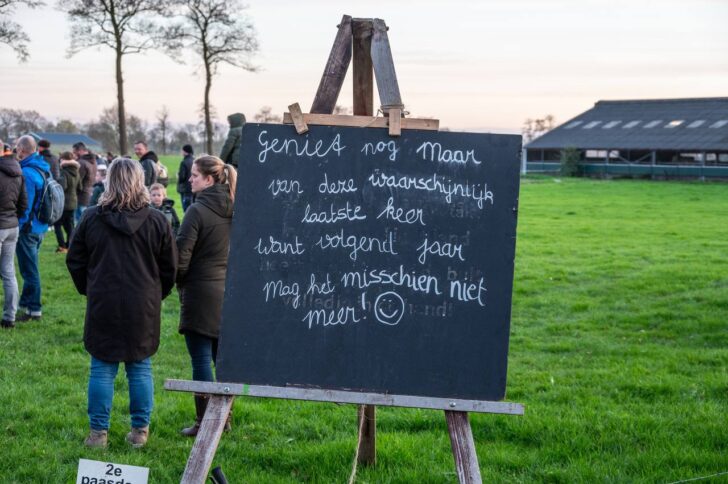 Geniet nog maar
van deze waarschijnlijk
laatste keer
want volgend jaar
Mag het misschien niet
meer!
2e
paasd